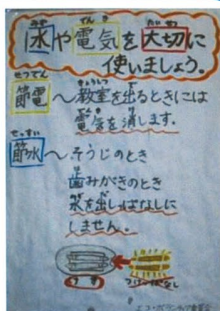 水や電気を大切に
使いましょう。
節電～教室を出るときには
電気を消します。
節水～そうじのとき
歯みがきのとき
水を出しっぱなしに
しません。